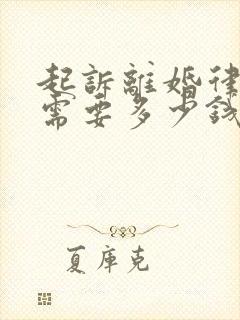 起訴離婚律
需要多少錢
夏庫克